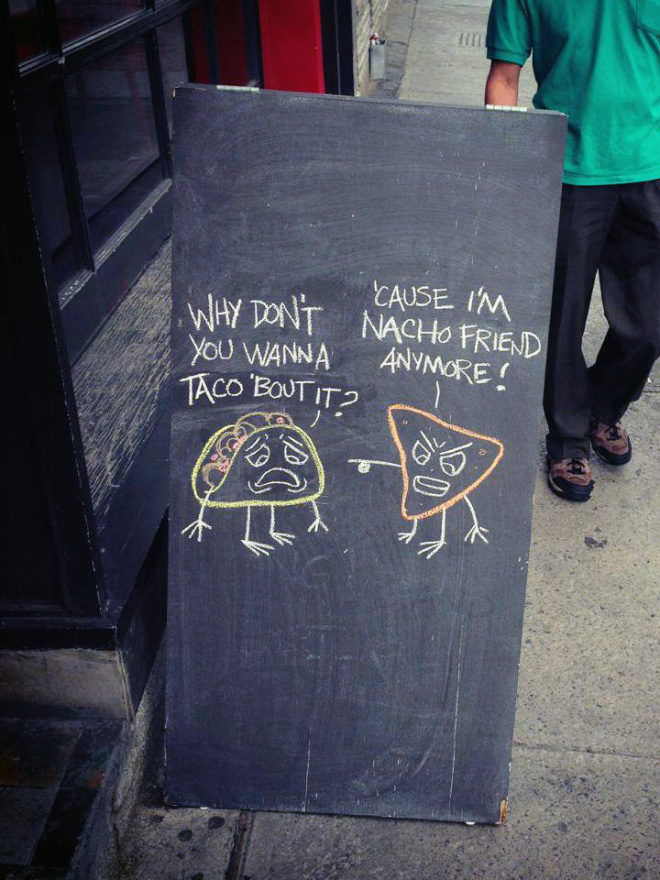 WHY DON'T
YOU WANNA
TACO 'BOUT IT?
'CAUSE I'M
NACHO FRIEND
ANYMORE!